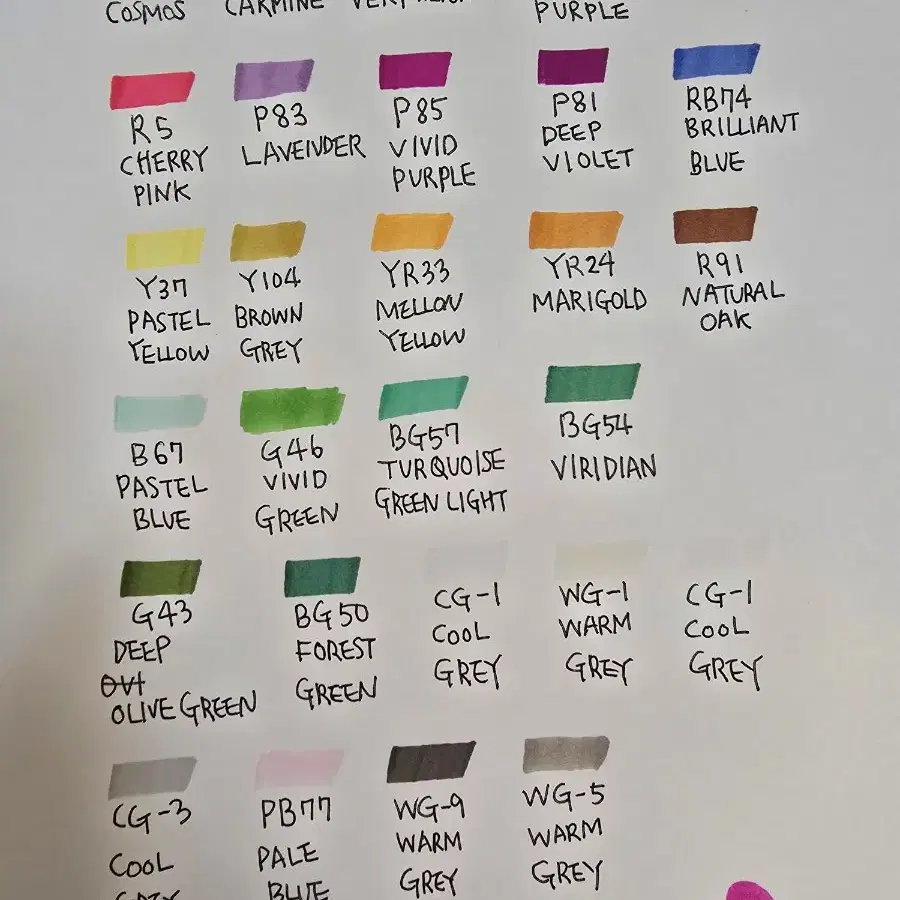 COSMOS
CARMINE
PURPLE
R5
CHERRY
PINK
P83
LAVEINDER
P85
VIVID
PURPLE
P81
DEEP
VIOLET
RB74
BRILLIANT
BLUE
Y37
PASTEL
YELLOW
Y104
BROWN
GREY
YR33
MELLON
YELLOW
YR24
MARIGOLD
R91
NATURAL
OAK
B67
PASTEL
BLUE
G46
VIVID
GREEN
BG57
TURQUOISE
GREEN LIGHT
BG54
VIRIDIAN
G43
DEEP
OLIVE GREEN
BG50
FOREST
GREEN
CG-1
COOL
GREY
WG-1
WARM
GREY
CG-1
COOL
GREY
CG-3
COOL
GREY
PB77
PALE
BLUE
WG-9
WARM
GREY
WG-5
WARM
GREY